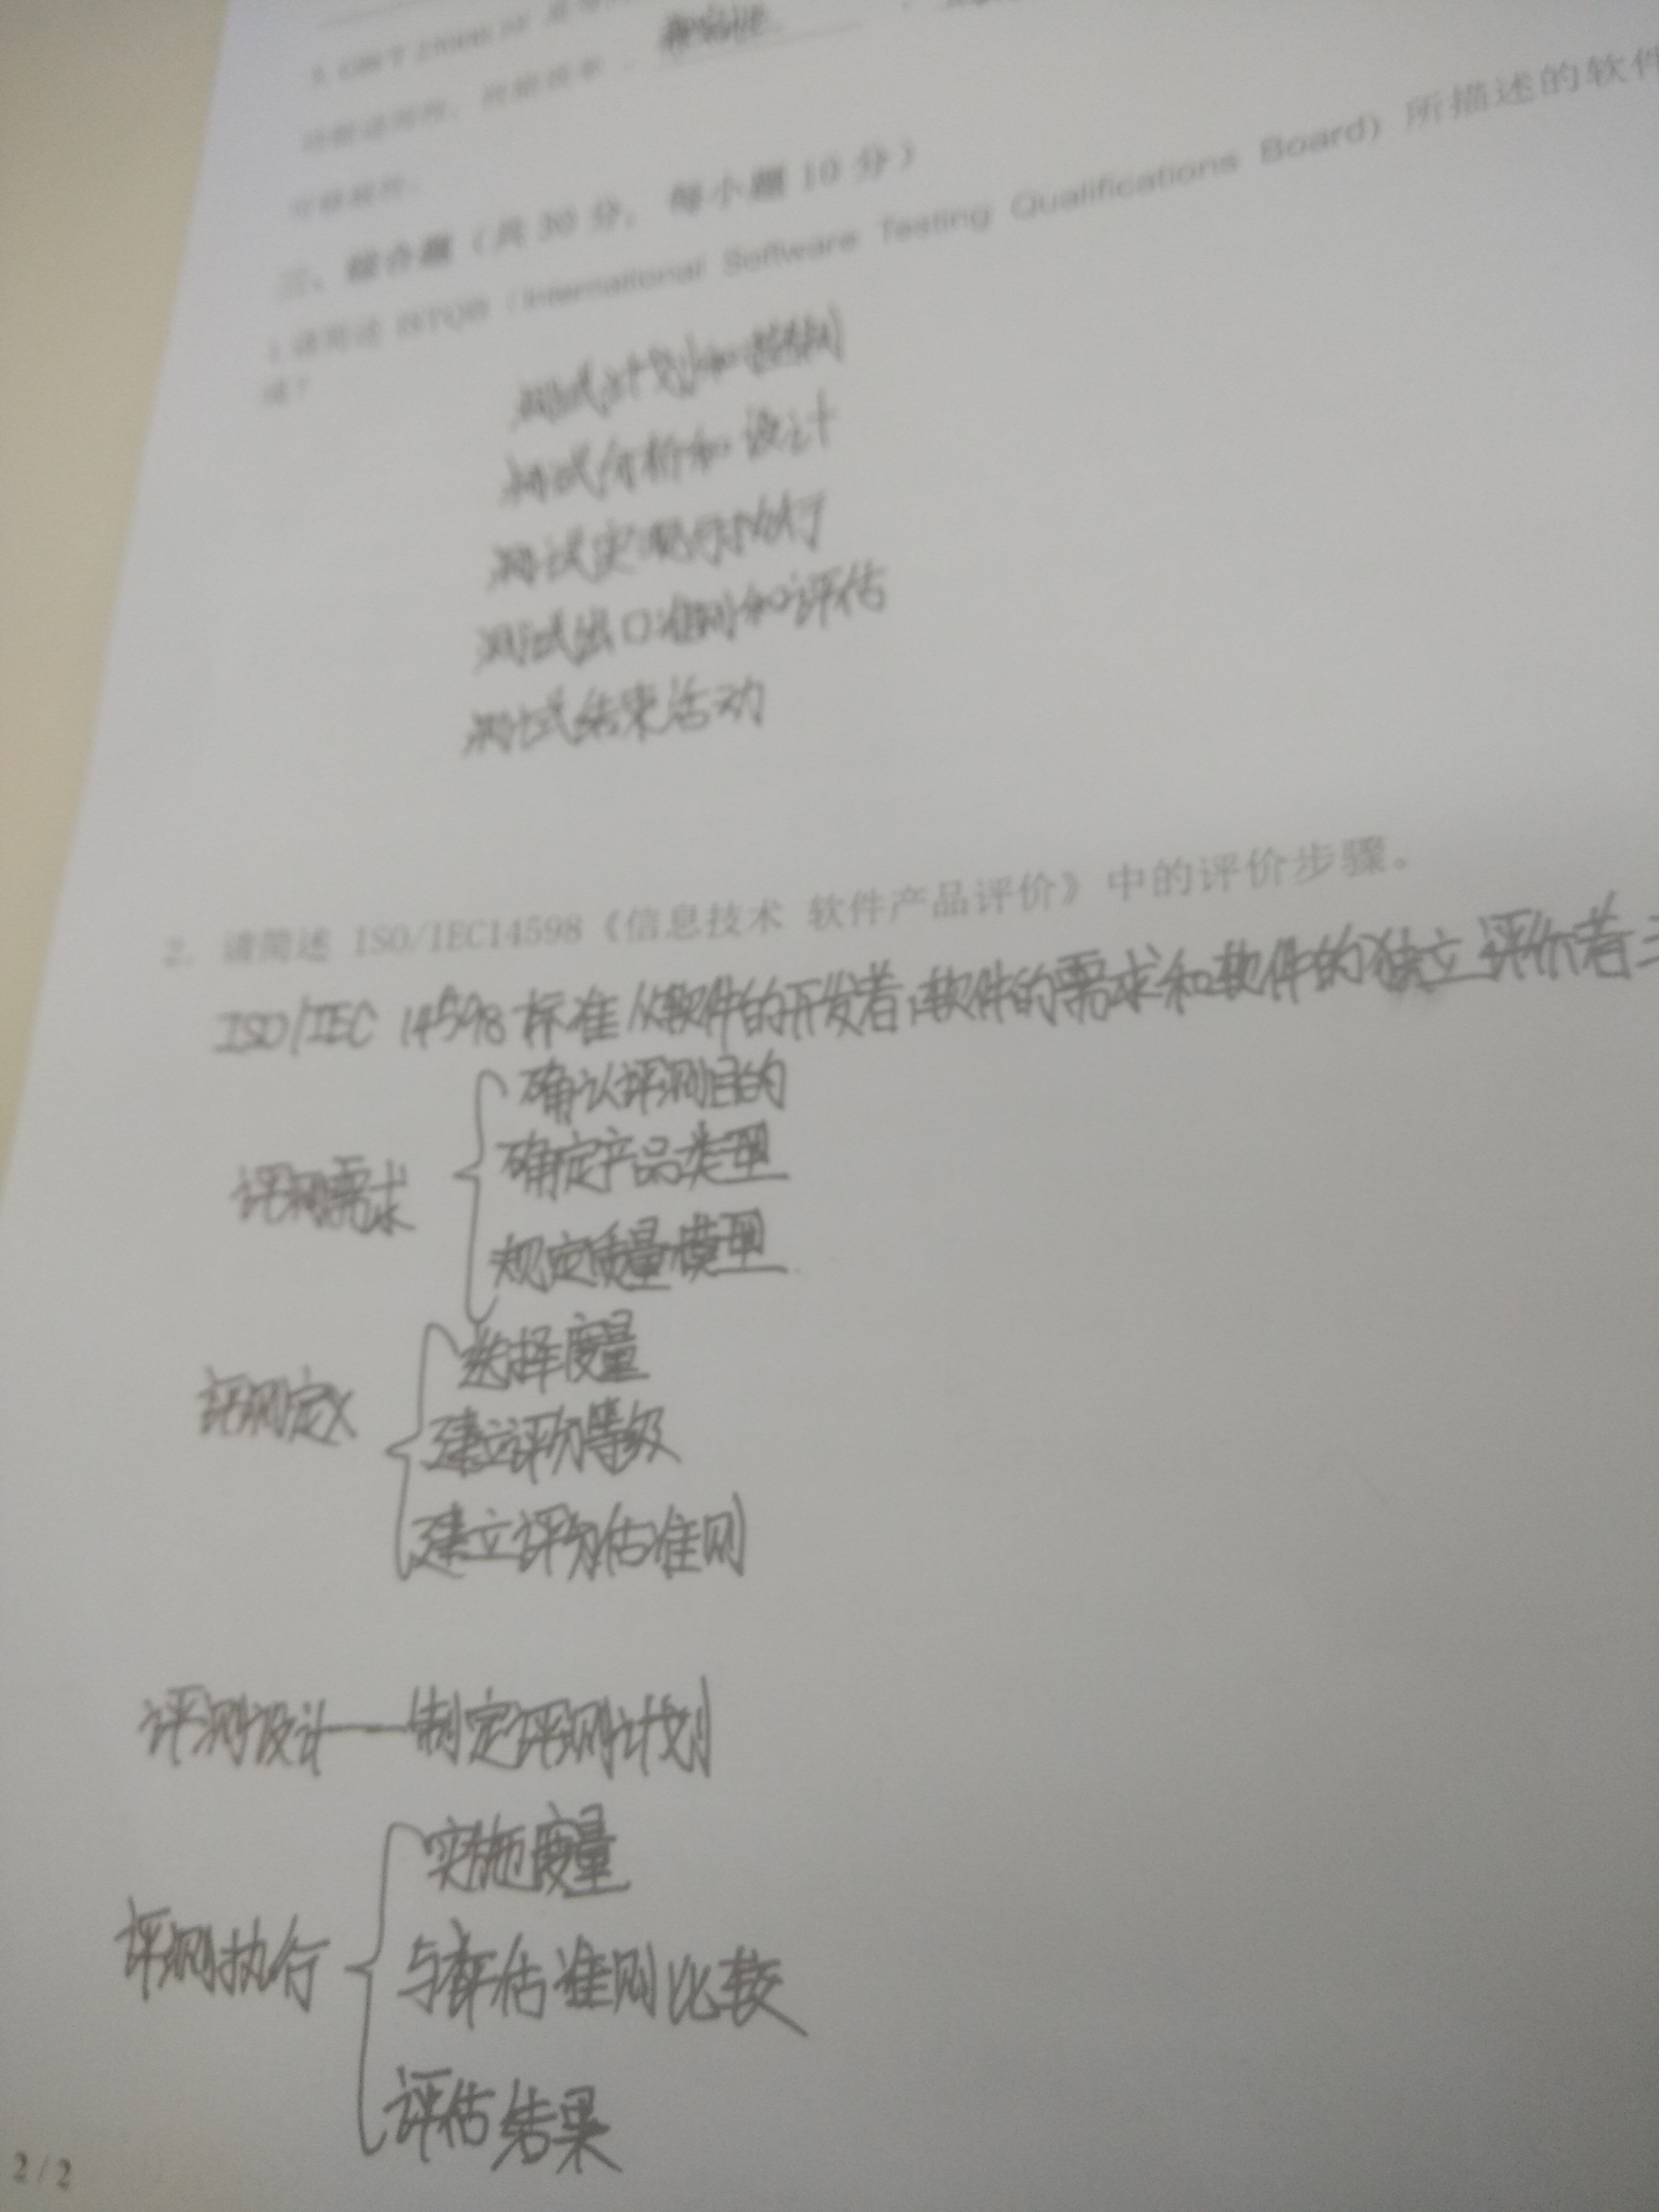 三、综合题（共 30 分， 每小题 10 分）
1.请简述 ISTQB（International Software Testing Qualifications Board）所描述的软件
测试计划和控制
测试分析和设计
测试实现与执行
测试出口准则和评估
测试结束活动
2. 请简述 ISO/IEC14598《信息技术 软件产品评价》中的评价步骤。
ISO/IEC 14598标准从软件的开发者,软件的需求和软件的独立评价者三
确认评测目的
评测需求 确定产品类型
规定质量模型
选择度量
评测定义 建立评分等级
建立评估准则
评测设计——制定评测计划
实施度量
评测执行 与评估准则比较
评估结果
2/2